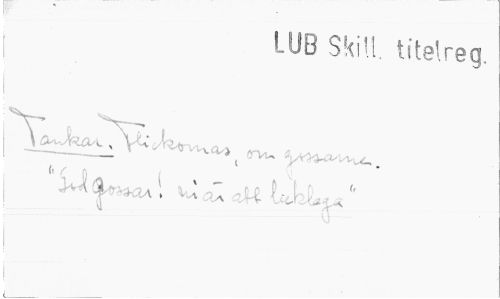 LUB Skill. titelreg.
Tankar. Flickornas, om gossarne.
"God gossar! ni är att beklaga"